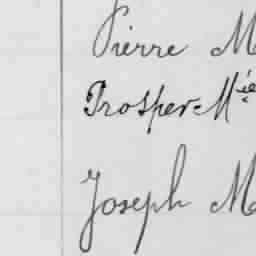 Pierre M
Prosper-Mie
Joseph M